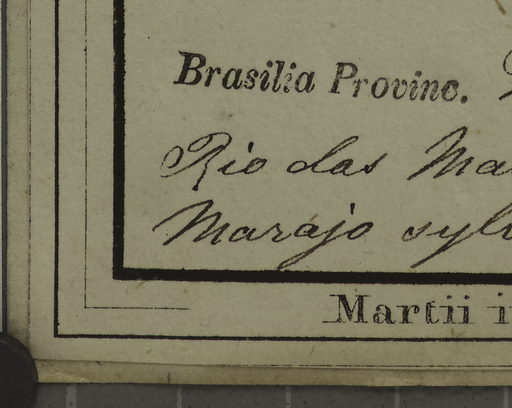 Brasilia Provinc.
Rio das
Marajo
Martii